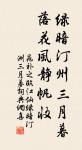 綠暗汀州三月暮
落花風靜帆收
晁補之臨江仙綠暗汀
洲三月暮詞典網